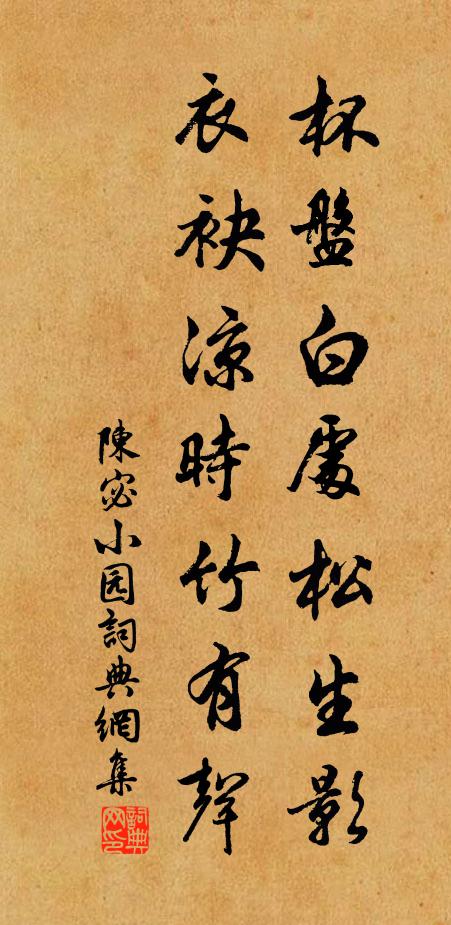 杯盤白處松生影
衣袂涼時竹有聲
陳宓小园詞典網集
詞典网印